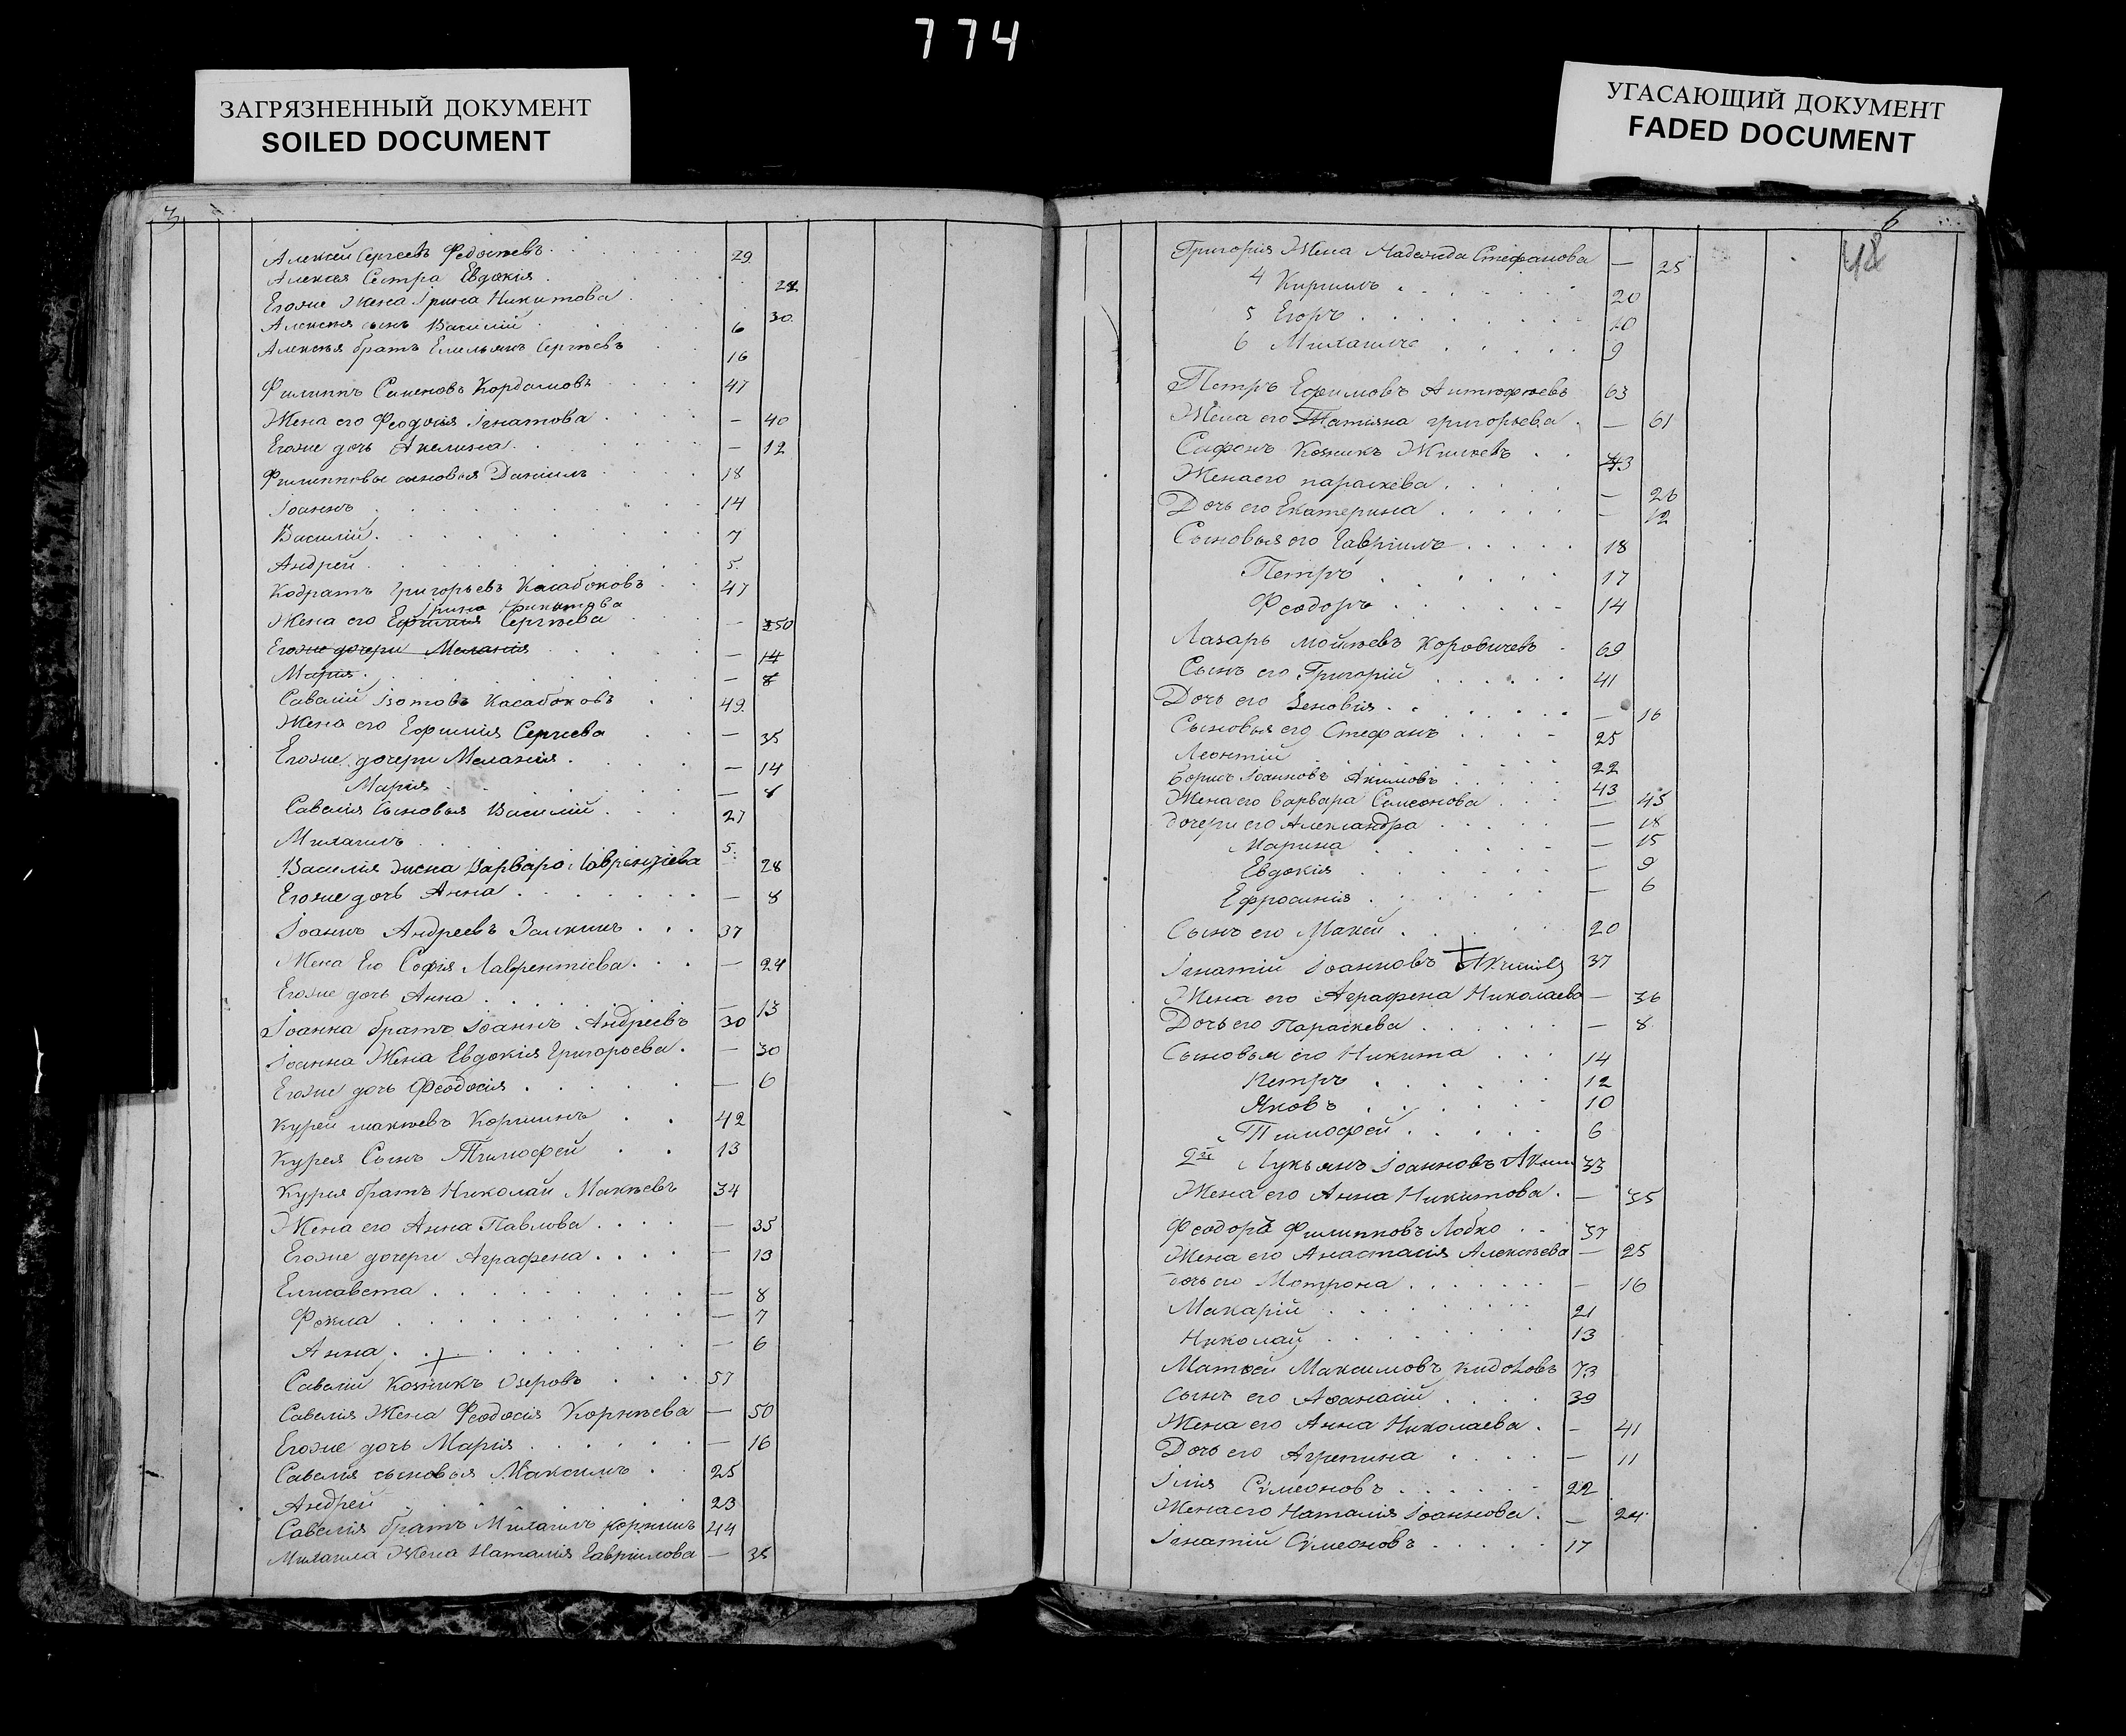 774
ЗАГРЯЗНЕННЫЙ ДОКУМЕНТ
SOILED DOCUMENT
УГАСАЮЩИЙ ДОКУМЕНТ
FADED DOCUMENT
3
Алексѣй Сергеевъ Федотьевъ 29
Алексея Сестра Евдокія
Егоже Жена Ірина Никитова 30
Алексея сынъ Василій 6
Алексѣя братъ Емельянъ Сергѣевъ 16
Филиппъ Семеновъ Кордашовъ 47
Жена его Феодосія Ігнатова — 40
Егоже дочь Акелина — 12
Филипповы сыновья Даніилъ 18
Іоаннъ 14
Василій 7
Андрей 5
Кодратъ Григорьевъ Касабоковъ 47
Ірина Никитова
Жена его Ефимія Сергѣева — 50
Егоже дочери Меланія — 14
Марія — 8
Савелій Ізотовъ Касабоковъ 49
Жена его Ефимія Сергиева — 35
Егоже дочери Меланія — 14
Марія — 8
Савелія Сыновья Василій 27
Михаилъ 5
Василія жена Варвара Лаврентіева 28
Егоже дочь Анна — 8
Іоаннъ Андреевъ Заикинъ 37
Жена Его Софія Лаврентіева — 24
Егоже дочь Анна — 13
Іоанна братъ Іоаннъ Андреевъ 30
Іоанна Жена Евдокія Григорьева — 30
Егоже дочь Феодосія — 6
Курей макѣевъ Коршинъ 42
Курея Сынъ Тимофей 13
Курея братъ Николай Макѣевъ 34
Жена его Анна Павлова — 35
Егоже дочери Аграфена — 13
Елисавета — 8
Фекла — 7
Анна — 6
Савелій Козмикъ Озеровъ 57
Савелія Жена Феодосія Корнѣева — 50
Егоже дочь Марія — 16
Савелія сыновья Максимъ 25
Андрей 23
Савелія братъ Михаилъ 44
Михаила Жена Наталія Гавріилова — 35
6
48
Григорія Жена Надежда Стефанова — 25
4 Кирилъ 20
5 Егоръ 10
6 Михаилъ 9
Петръ Ефимовъ Антюфѣевъ 63
Жена его Татіяна григорьева — 61
Сафонъ Козмикъ Жилѣевъ 43
Жена его параскева — 26
Дочь его Екатерина — 12
Сыновья его Гавріилъ 18
Петръ 17
Феодоръ 14
Лазарь мойсѣевъ Коровичевъ 69
Сынъ его Григорій 41
Дочь его Зеновія — 16
Сыновья его Стефанъ 25
Леонтій 22
Борисъ Іоанновъ Акимовъ 43
Жена его варвара Семеонова — 45
дочери его Александра — 18
Марина — 15
Евдокія — 9
Ефросинія — 6
Сынъ его Макей 20
Ігнатій Іоанновъ Акимовъ 37
Жена его Аграфена Николаева — 36
Дочь его Параскева — 8
Сыновья его Никита 14
Петръ 12
Яковъ 10
Тимофей 6
2й Лукьянъ Іоанновъ Аким 33
Жена его Анна Никитова — 35
Феодоръ Филипповъ Лобко 37
Жена его Анастасія Алексѣева — 25
дочь его Мотрона — 16
Макарій 21
Николай 13
Матѳей Максимовъ 73
сынъ его Аѳанасій 39
Жена его Анна Николаева — 41
Дочь его Агрепина — 11
Ілія Сѵмеоновъ 22
Жена его Наталія Іоаннова — 24
Ігнатій Сѵмеоновъ 17